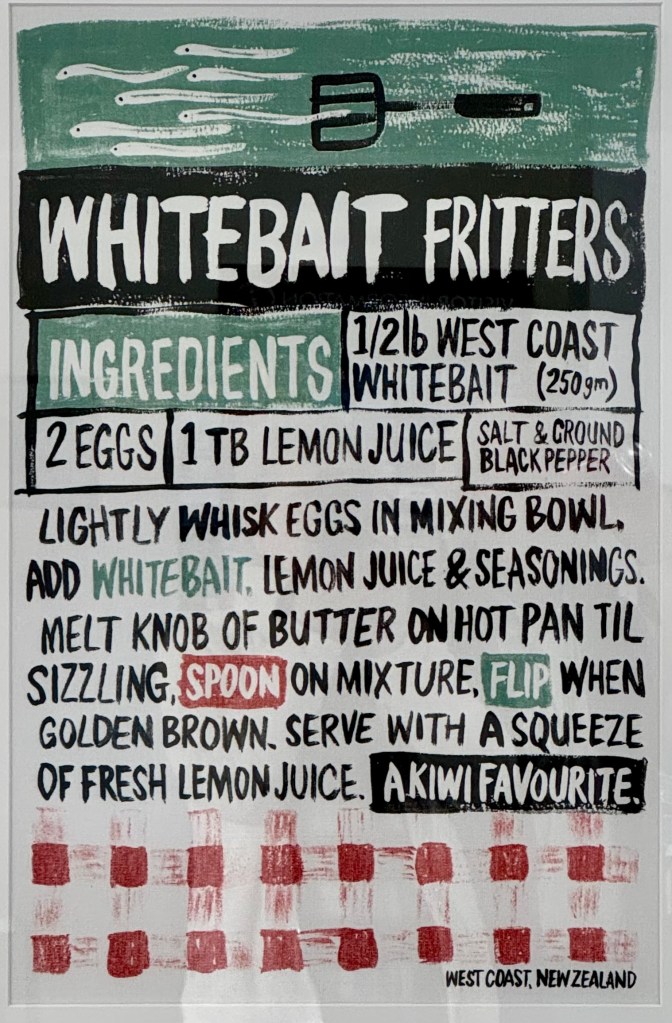 WHITEBAIT FRITTERS
INGREDIENTS
1/2lb WEST COAST
WHITEBAIT (250gm)
2 EGGS
1 TB LEMON JUICE
SALT & GROUND
BLACK PEPPER
LIGHTLY WHISK EGGS IN MIXING BOWL.
ADD WHITEBAIT, LEMON JUICE & SEASONINGS.
MELT KNOB OF BUTTER ON HOT PAN TIL
SIZZLING, SPOON ON MIXTURE, FLIP WHEN
GOLDEN BROWN. SERVE WITH A SQUEEZE
OF FRESH LEMON JUICE. A KIWI FAVOURITE.
WEST COAST, NEW ZEALAND